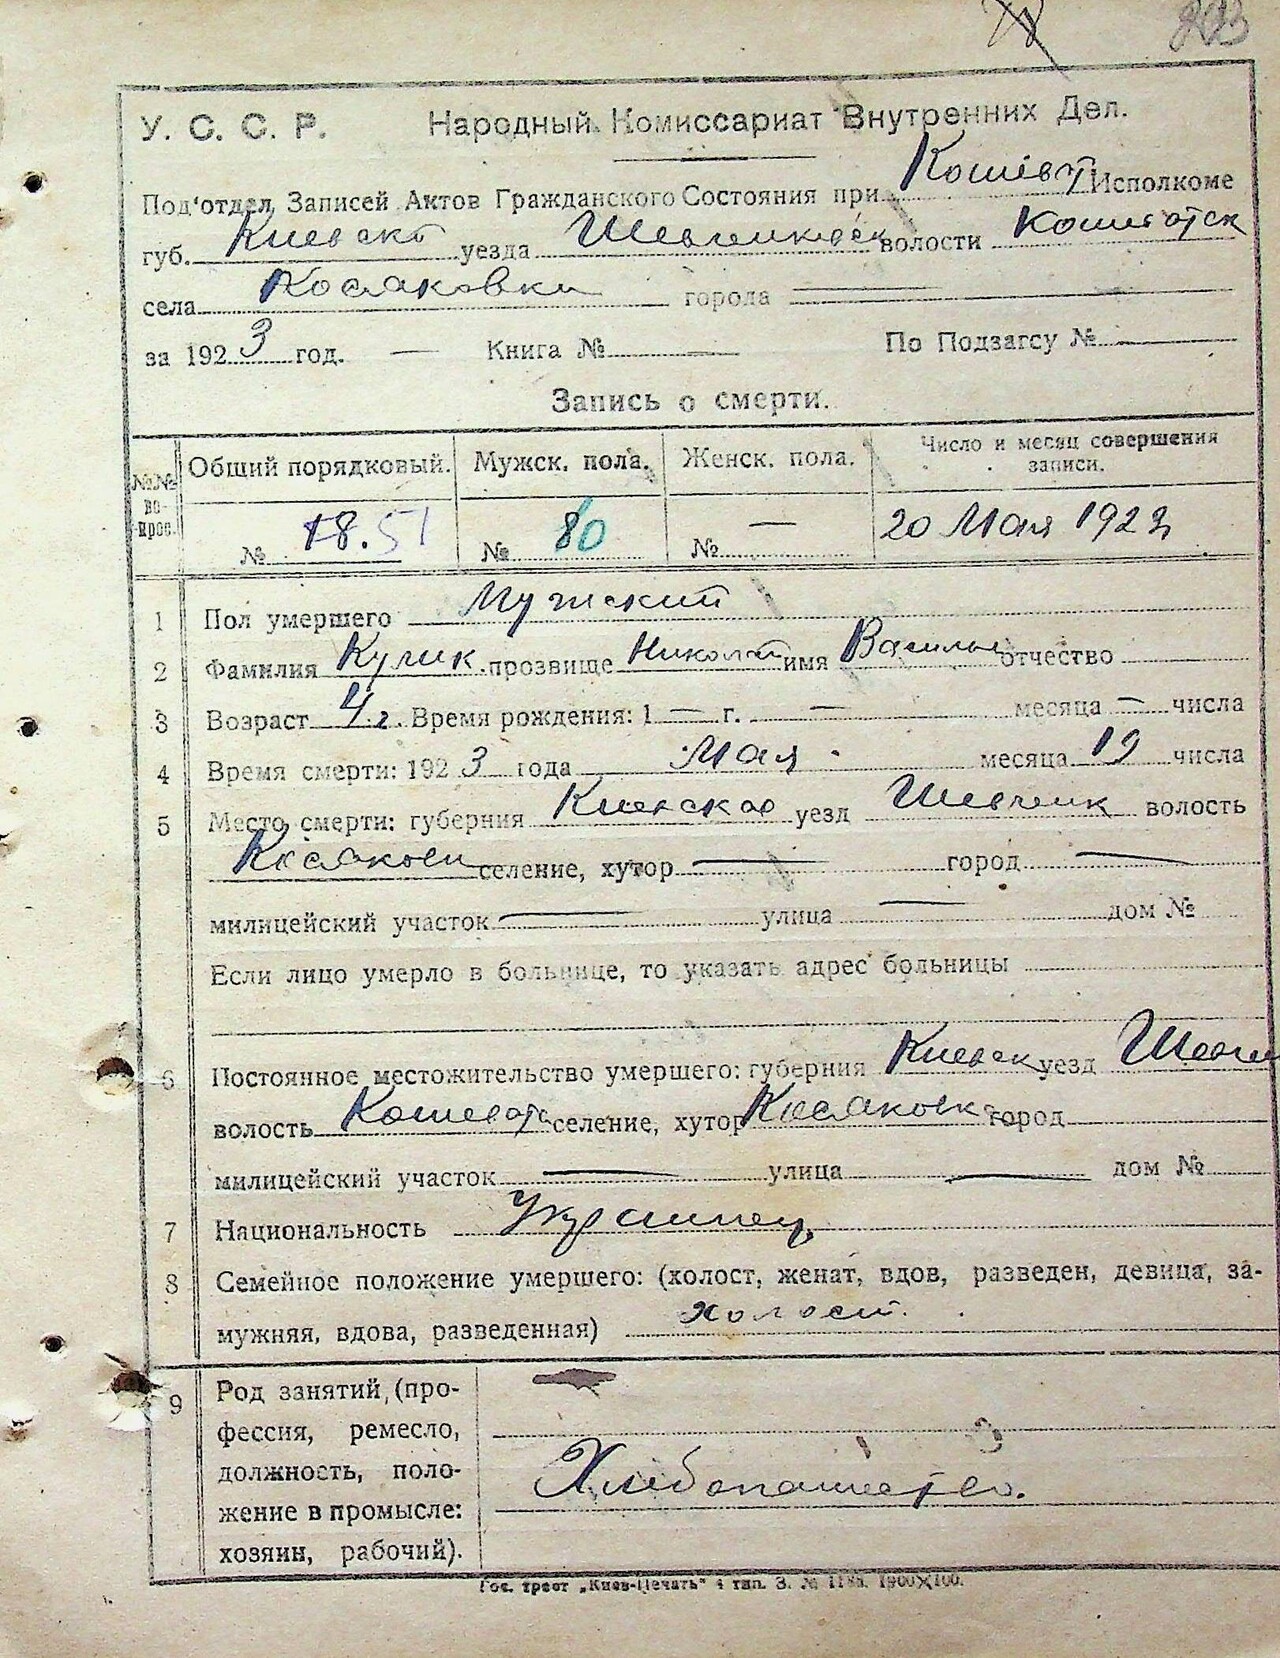 У. С. С. Р. Народный Комиссариат Внутренних Дел.
Под'отдел Записей Актов Гражданского Состояния при Кошеват Исполкоме
губ. Киевско уезда Шевченковск волости Кошеватск
села Косяковки города —
за 1923 год. — Книга № — По Подзагсу № —
Запись о смерти.
№№ вопрос. Общий порядковый. Мужск. пола. Женск. пола. Число и месяц совершения записи.
№ 18. 51 № 80 № — 20 Мая 1923
1 Пол умершего Мужский
2 Фамилия Кулик прозвище Николай имя Василь отчество
3 Возраст 4 г. Время рождения: 1 — г. — месяца — числа
4 Время смерти: 1923 года Мая месяца 19 числа
5 Место смерти: губерния Киевская уезд Шевченк волость
Косяковки селение, хутор — город —
милицейский участок — улица — дом №
Если лицо умерло в больнице, то указать адрес больницы
6 Постоянное местожительство умершего: губерния Киевск уезд Шевчен
волость Кошеватс селение, хутор Косяковка город
милицейский участок — улица — дом №
7 Национальность Украинец
8 Семейное положение умершего: (холост, женат, вдов, разведен, девица, за-
мужняя, вдова, разведенная) холост.
9 Род занятий, (про-
фессия, ремесло,
должность, поло-
жение в промысле:
хозяин, рабочий).
Хлебопашество.
Гос. трест „Киев-Печать" 4 тип. З. № 1188. 1900×100.